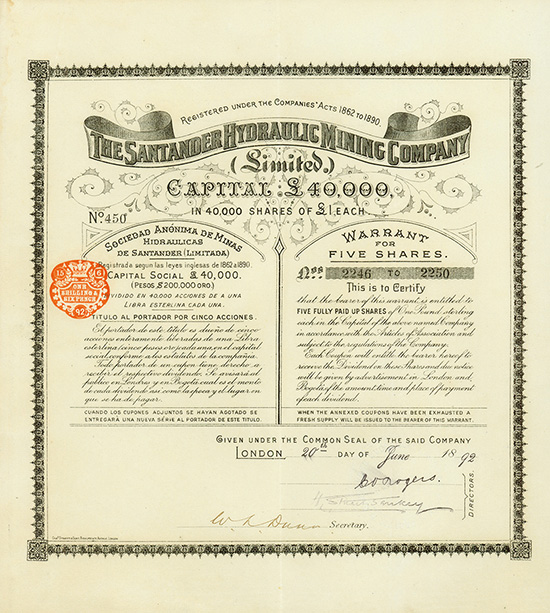 REGISTERED UNDER THE COMPANIES' ACTS 1862 TO 1890.
THE SANTANDER HYDRAULIC MINING COMPANY
(Limited.)
CAPITAL £40,000.
IN 40,000 SHARES OF £1 EACH.
No. 450
SOCIEDAD ANÓNIMA DE MINAS
HIDRAULICAS
DE SANTANDER (LIMITADA)
Registrada segun las leyes inglesas de 1862 a 1890.
CAPITAL SOCIAL £40,000.
(PESOS $200.000 ORO.)
DIVIDIDO EN 40,000 ACCIONES DE A UNA
LIBRA ESTERLINA CADA UNA.
TITULO AL PORTADOR POR CINCO ACCIONES.
El portador de este titulo es dueño de cinco
acciones enteramente liberadas de una Libra
esterlina (cinco pesos oro) cada una, en el capital
social, conforme a los estatutos de la compañia.
Todo portador de un cupon tiene derecho a
recibir el respectivo dividendo. Se avisará al
publico en Londres y en Bogotá cual es el monto
de cada dividendo asi como la epoca y el lugar en
que se ha de pagar.
CUANDO LOS CUPONES ADJUNTOS SE HAYAN AGOTADO SE
ENTREGARÁ UNA NUEVA SÉRIE AL PORTADOR DE ESTE TITULO.
WARRANT
FOR
FIVE SHARES.
Nos. 2246 TO 2250
This is to Certify
that the bearer of this warrant is entitled to
FIVE FULLY PAID UP SHARES of One Pound sterling
each in the Capital of the above named Company
in accordance with the Articles of Association and
subject to the regulations of the Company.
Each Coupon will entitle the bearer hereof to
receive the Dividend on these Shares and due notice
will be given by advertisement in London and
Bogotá of the amount time and place of payment
of each dividend.
WHEN THE ANNEXED COUPONS HAVE BEEN EXHAUSTED A
FRESH SUPPLY WILL BE ISSUED TO THE BEARER OF THIS WARRANT.
ONE
SHILLING &
SIX PENCE
92
GIVEN UNDER THE COMMON SEAL OF THE SAID COMPANY
LONDON 20th DAY OF June 1892
Rogers.
DIRECTORS.
Secretary.